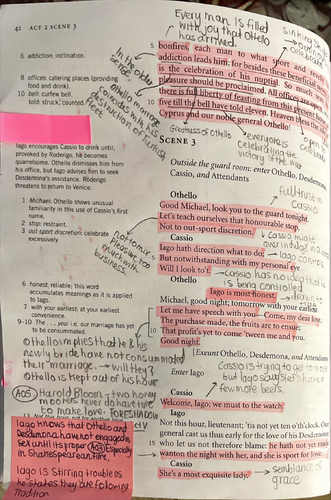 Every man is filled
with joy that Othello
has arrived.
42 ACT 2 SCENE 3
6 addiction: inclination.
8 offices: catering places (providing
food and drink).
10 bell: curfew bell.
told: struck; counted.
In the Othello
marriage
coincides with his
destruction of turkish
fleet
5 bonfires, each man to what sport and
addiction leads him; for besides these beneficial
is the celebration of his nuptial. So much
pleasure should be proclaimed. All offices are open
there is full liberty of feasting from this present
10 five till the bell have told eleven. Heaven bless the
Cyprus and our noble general Othello!
greatness of Othello
everyone is
celebrating the
victory of the war
SCENE 3
Outside the guard room; enter Othello, Desdemona,
Cassio, and Attendants
Iago encourages Cassio to drink until,
provoked by Roderigo, he becomes
quarrelsome. Othello dismisses him from
his office, but Iago advises him to seek
Desdemona's assistance. Roderigo
threatens to return to Venice.
1 Michael: Othello shows unusual
familiarity in this use of Cassio's first
name.
2 stop: restraint.
3 out-sport discretion: celebrate
excessively.
not to mix
pleasure too
much with
business.
Othello
Good Michael, look you to the guard tonight.
Let's teach ourselves that honourable stop,
Not to out-sport discretion.
full trust in
Cassio
Cassio
Iago hath direction what to do;
But notwithstanding with my personal eye
Will I look to't.
Cassio has no idea that he
is being controlled
Othello
Iago is most honest.
Michael, good night; tomorrow with your earliest
Let me have speech with you. Come, my dear love,
The purchase made, the fruits are to ensue:
10 That profit's yet to come 'tween me and you.
Good night.
6 honest: reliable; this word
accumulates meanings as it is applied
to Iago.
7 with your earliest: at your earliest
convenience.
9–10 The . . . you: i.e. our marriage has yet
to be consummated.
Exeunt Othello, Desdemona, and Attendants
Enter Iago
Othello implies that he & his
newly bride have not consummated
their marriage. → will they?
Othello is kept out of his hour
Cassio is trying to get to work
but Iago says let's have a
few more beers.
Cassio
Welcome, Iago; we must to the watch.
Iago
Not this hour, lieutenant; 'tis not yet ten o'th'clock. Our
general cast us thus early for the love of his Desdemona;
15 who let us not therefore blame: he hath not yet made
wanton the night with her, and she is sport for Jove.
Cassio
She's a most exquisite lady.
semblance of
grace
AO5 Harold Bloom - two honey
moons never do have time
to make love. FORESHADOW
Iago knows that Othello and
Desdemona have not engaged in
sex until its proper AO3 Especially
in Shakespearean time.
Iago is stirring trouble as
he states they are following
tradition